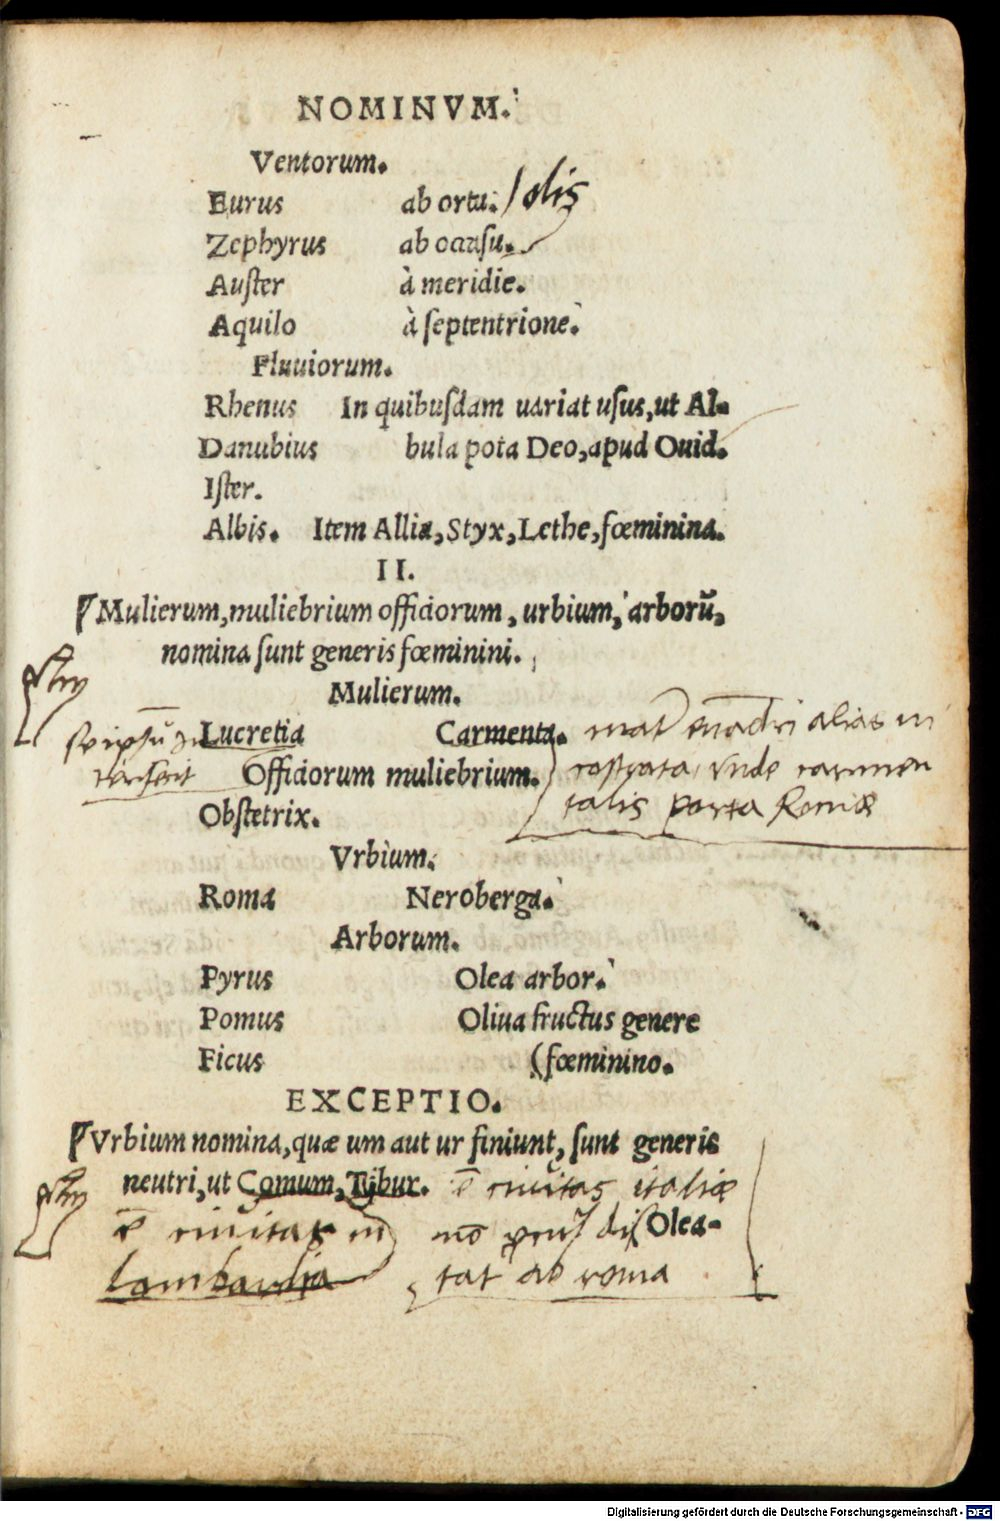 NOMINVM.
Ventorum.
Eurus ab ortu. solis
Zephyrus ab occasu.
Auster à meridie.
Aquilo à septentrione.
Fluuiorum.
Rhenus In quibusdam uariat usus, ut Al-
Danubius bula pota Deo, apud Ouid.
Ister.
Albis. Item Allia, Styx, Lethe, fœminina.
II.
Mulierum, muliebrium officiorum, urbium, arborũ,
nomina sunt generis fœminini.
Mulierum.
Lucretia Carmenta. alias
Officiorum muliebrium. vnde carmen
Obstetrix. talis porta Romæ
Vrbium.
Roma Neroberga.
Arborum.
Pyrus Olea arbor.
Pomus Oliua fructus genere
Ficus (fœminino.
EXCEPTIO.
Vrbium nomina, quæ um aut ur finiunt, sunt generis
neutri, ut Comum, Tybur. ē ciuitas italiæ
ē ciuitas in nō Olea-
lombardia ab roma
Digitalisierung gefördert durch die Deutsche Forschungsgemeinschaft - DFG